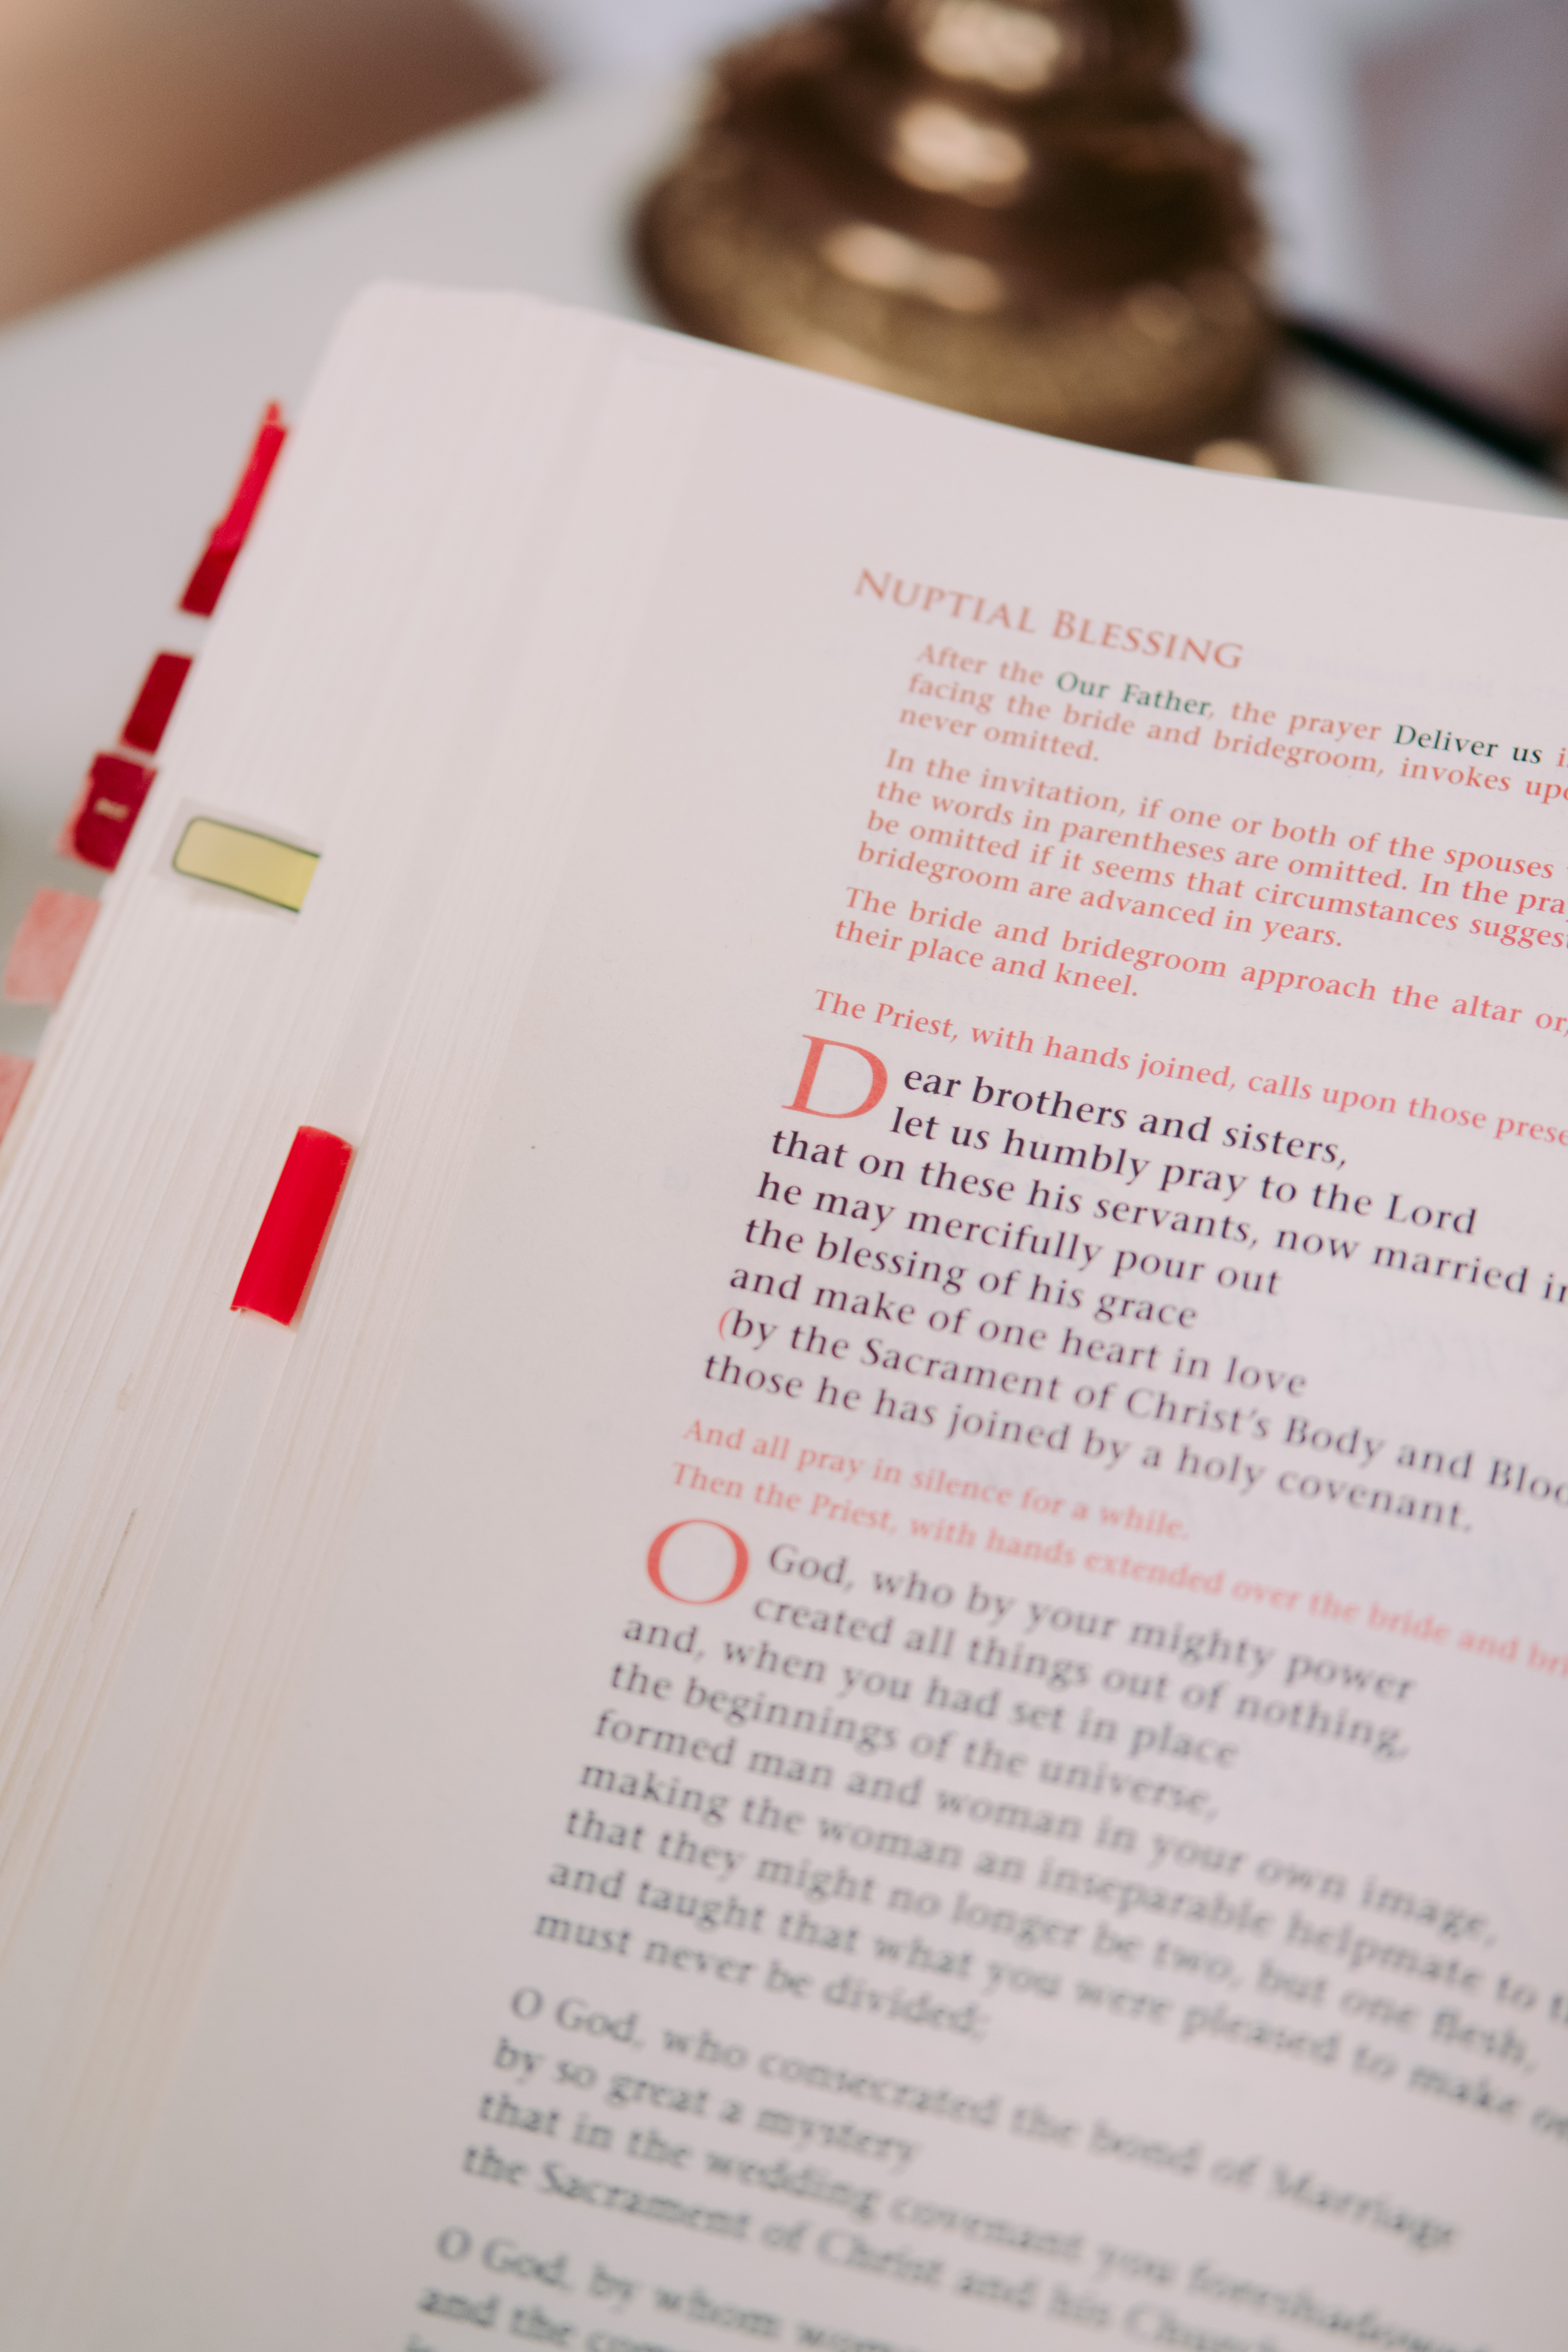 NUPTIAL BLESSING
After the Our Father, the prayer Deliver us
facing the bride and bridegroom, invokes
never omitted.
In the invitation, if one or both of the spouses
the words in parentheses are omitted. In the
be omitted if it seems that circumstances
bridegroom are advanced in years.
The bride and bridegroom approach the altar or,
their place and kneel.
The Priest, with hands joined, calls upon those
Dear brothers and sisters,
let us humbly pray to the Lord
that on these his servants, now married
he may mercifully pour out
the blessing of his grace
and make of one heart in love
(by the Sacrament of Christ's Body and
those he has joined by a holy covenant.
And all pray in silence for a while.
Then the Priest, with hands extended over the bride and
O God, who by your mighty power
created all things out of nothing,
and, when you had set in place
the beginnings of the universe,
formed man and woman in your own image,
making the woman an inseparable helpmate to
that they might no longer be two, but one flesh,
and taught that what you were pleased to make
must never be divided;
O God, who consecrated the bond of Marriage
by so great a mystery
that in the wedding covenant you
the Sacrament of Christ and his
O God, by whom
and the